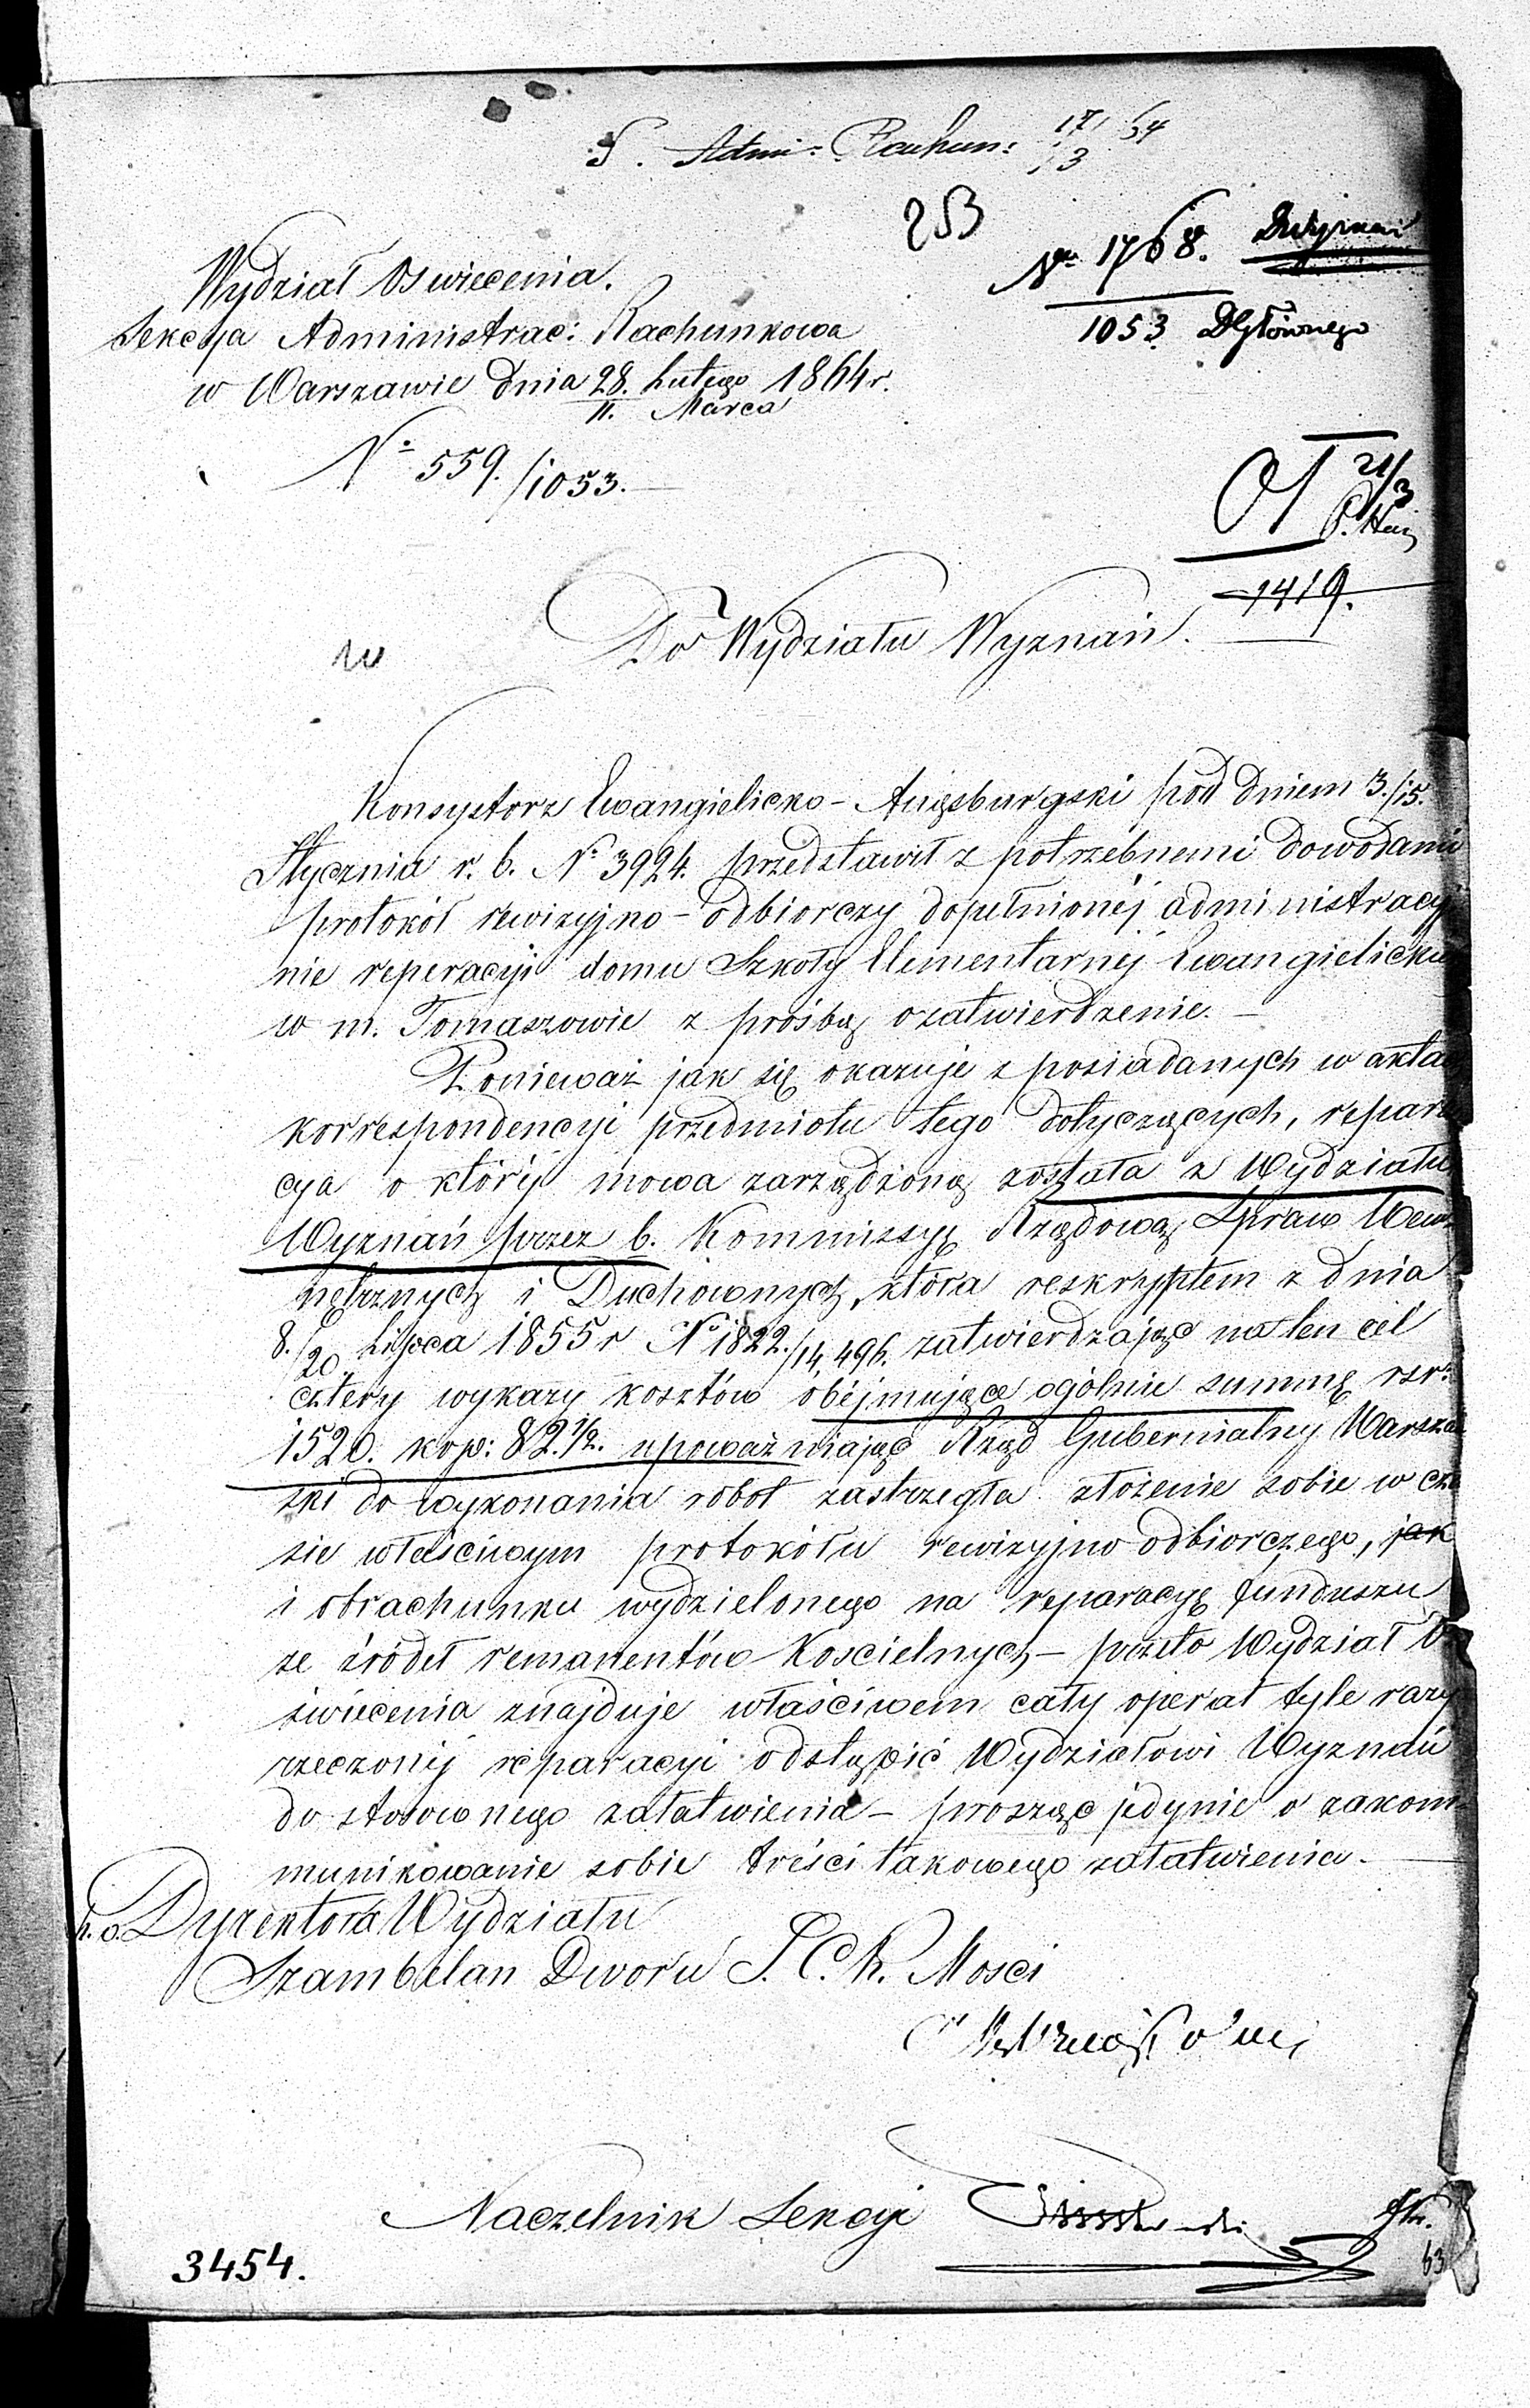 S. Adm: Rachun: 17/3 64
253
Nr 1768.
1053 DGłównego
Wydział Oswiecenia.
Sekcya Administrac: Rachunkowa
w Warszawie dnia 28. Lutego 1864 r.
11. Marca
N° 559./1053.
21/3
1419.
Do Wydziału Wyznań.
Konsystorz Ewangielicko-Augsburgski pod dniem 3./15.
Stycznia r. b. N° 3924. przedstawił z potrzebnemi dowodami
protokół rewizyjno-odbiorczy dopełnionéj administracyj
nie reperacyi domu Szkoły Elementarnéj Ewangielickiej
w m. Tomaszowie z prośbą o zatwierdzenie. —
Ponieważ jak się okazuje z posiadanych w aktac
korrespondencyi przedmiotu tego dotyczących, repara
cya o któréj mowa zarządzoną została z Wydziału
Wyznań przez b. Kommissyę Rządową Spraw Wew
nętrznych i Duchownych, która reskryptem z dnia
8./20. Lipca 1855 r N° 1822./14,496. zatwierdzając na ten cel
cztery wykazy kosztów obéjmujące ogólnie summę rsr:
1520. kop: 82.½. upoważniając Rząd Gubernialny Warszaw
ski do wykonania robot zastrzegła złożenie sobie w cza
sie właściwym protokółu rewizyjno odbiorczego, jak
i obrachunku wydzielonego na reparacyę funduszu
ze źródeł remanentów Koscielnych — przeto Wydział O
świecenia znajduje właściwem cały operat tyle razy
rzeczonéj reparacyi odstąpić Wydziałowi Wyznań
do stosownego załatwienia — prosząc jedynie o zakom-
munikowanie sobie treści takowego załatwienia. —
p.o. Dyrektora Wydziału
Szambelan Dworu J. C. K. Mosci
Naczelnik Sekcyi
3454.
63